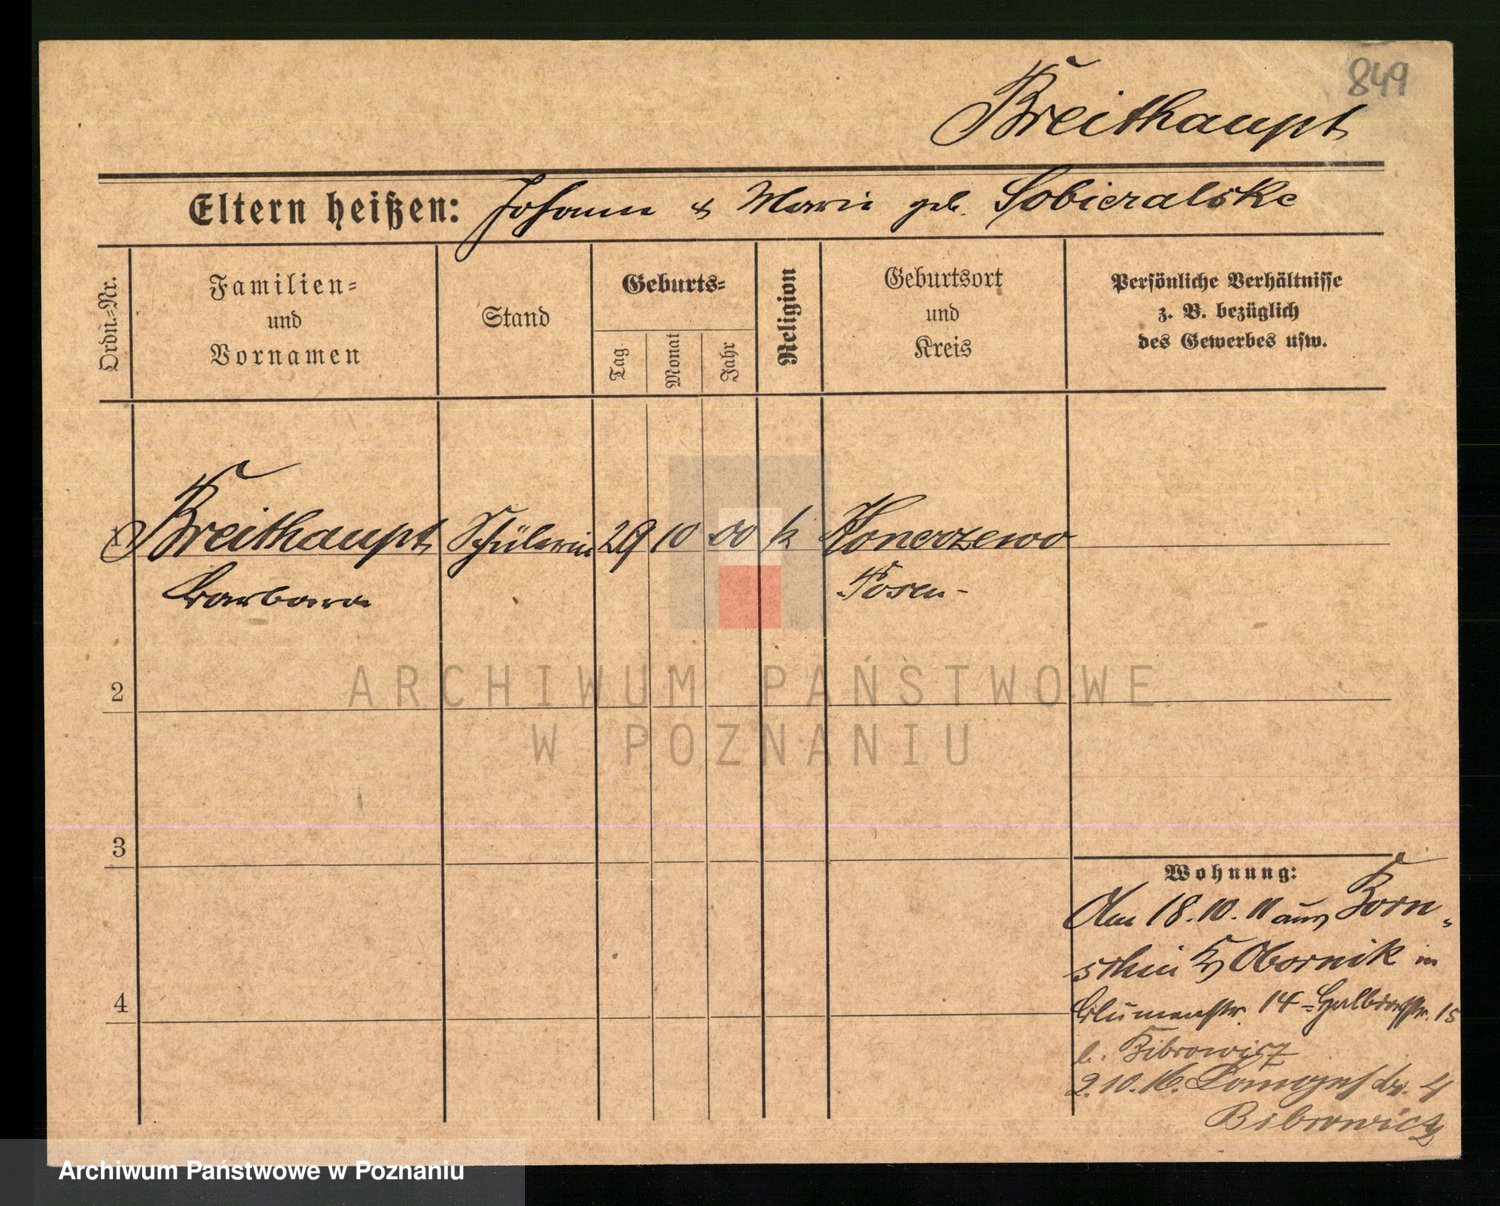 849
Breithaupt
Eltern heißen: Johann & Marie geb. Sobieralske
Ordn.-Nr.
Familien-
und
Vornamen
Stand
Geburts-
Tag
Monat
Jahr
Religion
Geburtsort
und
Kreis
Persönliche Verhältnisse
z. B. bezüglich
des Gewerbes usw.
Breithaupt Schülerin 29 10 00 k Konerzewo
Barbara Posen-
2
3
4
Wohnung:
Am 18.10.11 aus
Obornik in
Blumenstr. 14 - Halbdorfstr. 15
b. Bibrowicz
2.10.16.
Bibrowicz
ARCHIWUM PAŃSTWOWE
W POZNANIU
Archiwum Państwowe w Poznaniu